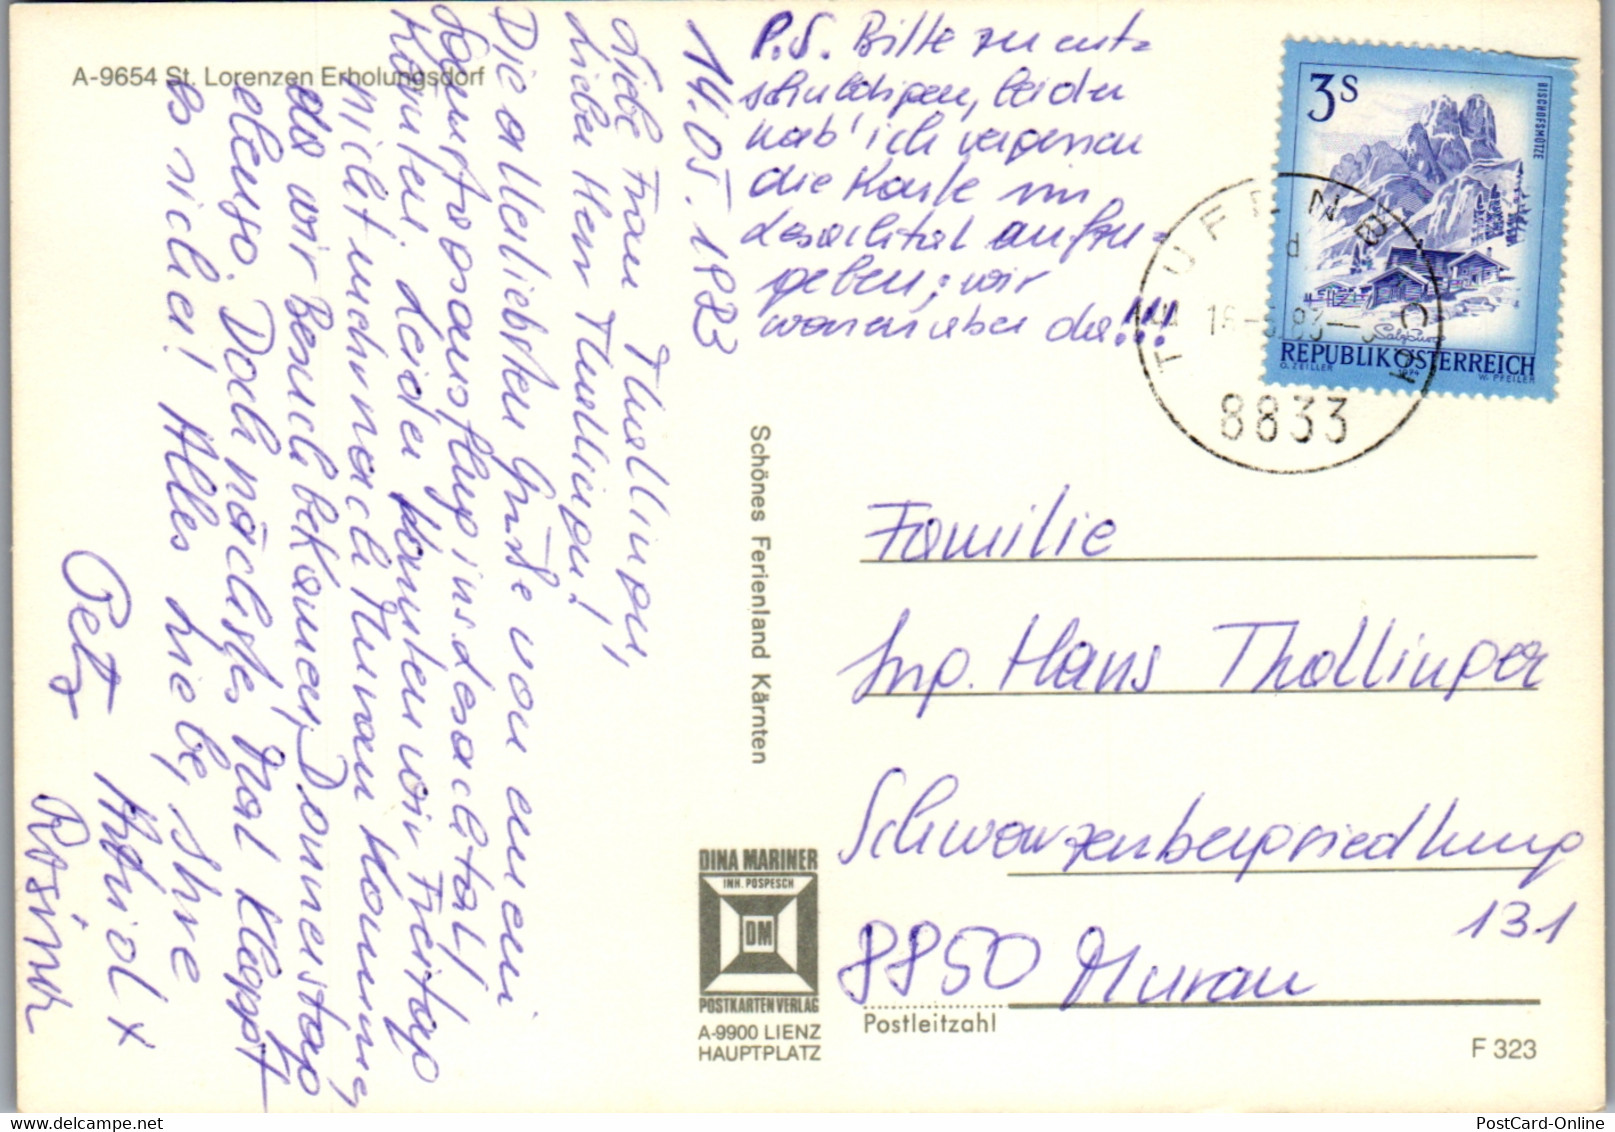 A-9654 St. Lorenzen Erholungsdorf
14.05.1983
Liebe Frau Thallinger,
Lieber Herr Thallinger!
Die allerliebsten Grüße von einem
Samstagsausflug ins Lesachtal!
Leider konnten wir Freitag
nicht mehr nach Murau kommen,
da wir Besuch bekamen, Donnerstag
ebenso. Doch nächstes Mal klappt
es sicher! Alles Liebe, Ihre
Petra
Rosina
P.S. Bitte zu ent=
schuldigen, leider
hab' ich vergessen
die Karte im
Lesachtal aufzu=
geben; wir
waren aber da!!!
3S
BISCHOFSMÜTZE
Salzburg
REPUBLIK ÖSTERREICH
O. ZEILLER 1974 W. PFEILER
TEUFENBACH
8833
Schönes Ferienland Kärnten
Familie
Ing. Hans Thallinger
Schwarzenbergsiedlung
131
8850 Murau
Postleitzahl
DINA MARINER
INH. POSPESCH
DM
POSTKARTENVERLAG
A-9900 LIENZ
HAUPTPLATZ
F 323